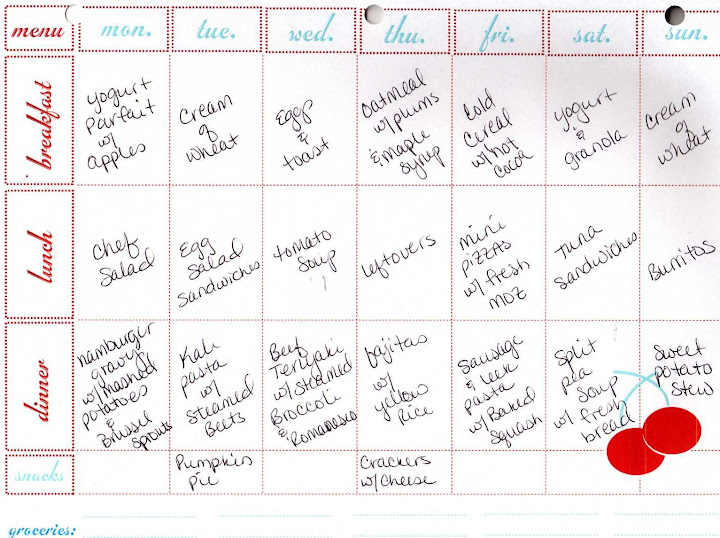 menu
mon.
tue.
wed.
thu.
fri.
sat.
sun.
breakfast
yogurt
parfait
w/
apples
Cream
of
wheat
Eggs
&
toast
Oatmeal
w/ plums
& maple
Syrup
Cold
Cereal
w/ hot
Cocoa
yogurt
&
granola
Cream
of
wheat
lunch
Chef
Salad
Egg
Salad
Sandwiches
tomato
Soup
Leftovers
mini
pizzas
w/ fresh
moz
Tuna
Sandwiches
Burritos
dinner
hamburger
gravy
w/ mashed
potatoes
&
Brussel
Sprouts
Kale
pasta
w/
Steamed
Beets
Beef
Teriyaki
w/ Steamed
Broccoli
& Romanesco
fajitas
w/
yellow
Rice
Sausage
& Leek
Pasta
w/ Baked
Squash
Split
pea
Soup
w/ fresh
bread
Sweet
potato
Stew
snacks
Pumpkin
Pie
Crackers
w/ cheese
groceries: